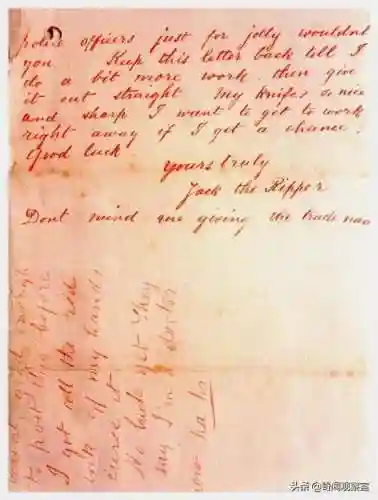 officers just for jolly wouldnt
you Keep this letter back till I
do a bit more work. then give
it out straight My knife's so nice
and sharp I want to get to work
right away if I get a chance.
Good luck.
yours truly
Jack the Ripper
Dont mind me giving the trade
good enough
to post this before
I got all the red
ink off my hands
curse it
No luck yet They
say I'm a doctor
now ha ha
头条 @奇闻观察室